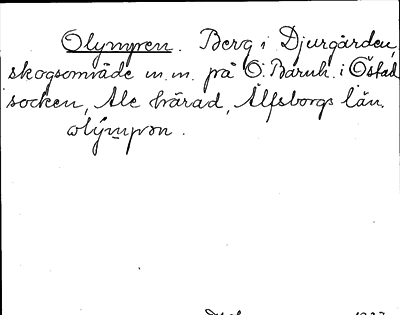 Olympen. Berg i Djurgården,
skogsområde m.m. på Ö. Baruh. i Östad
socken, Ale härad, Älfsborgs län.
olýmpən.